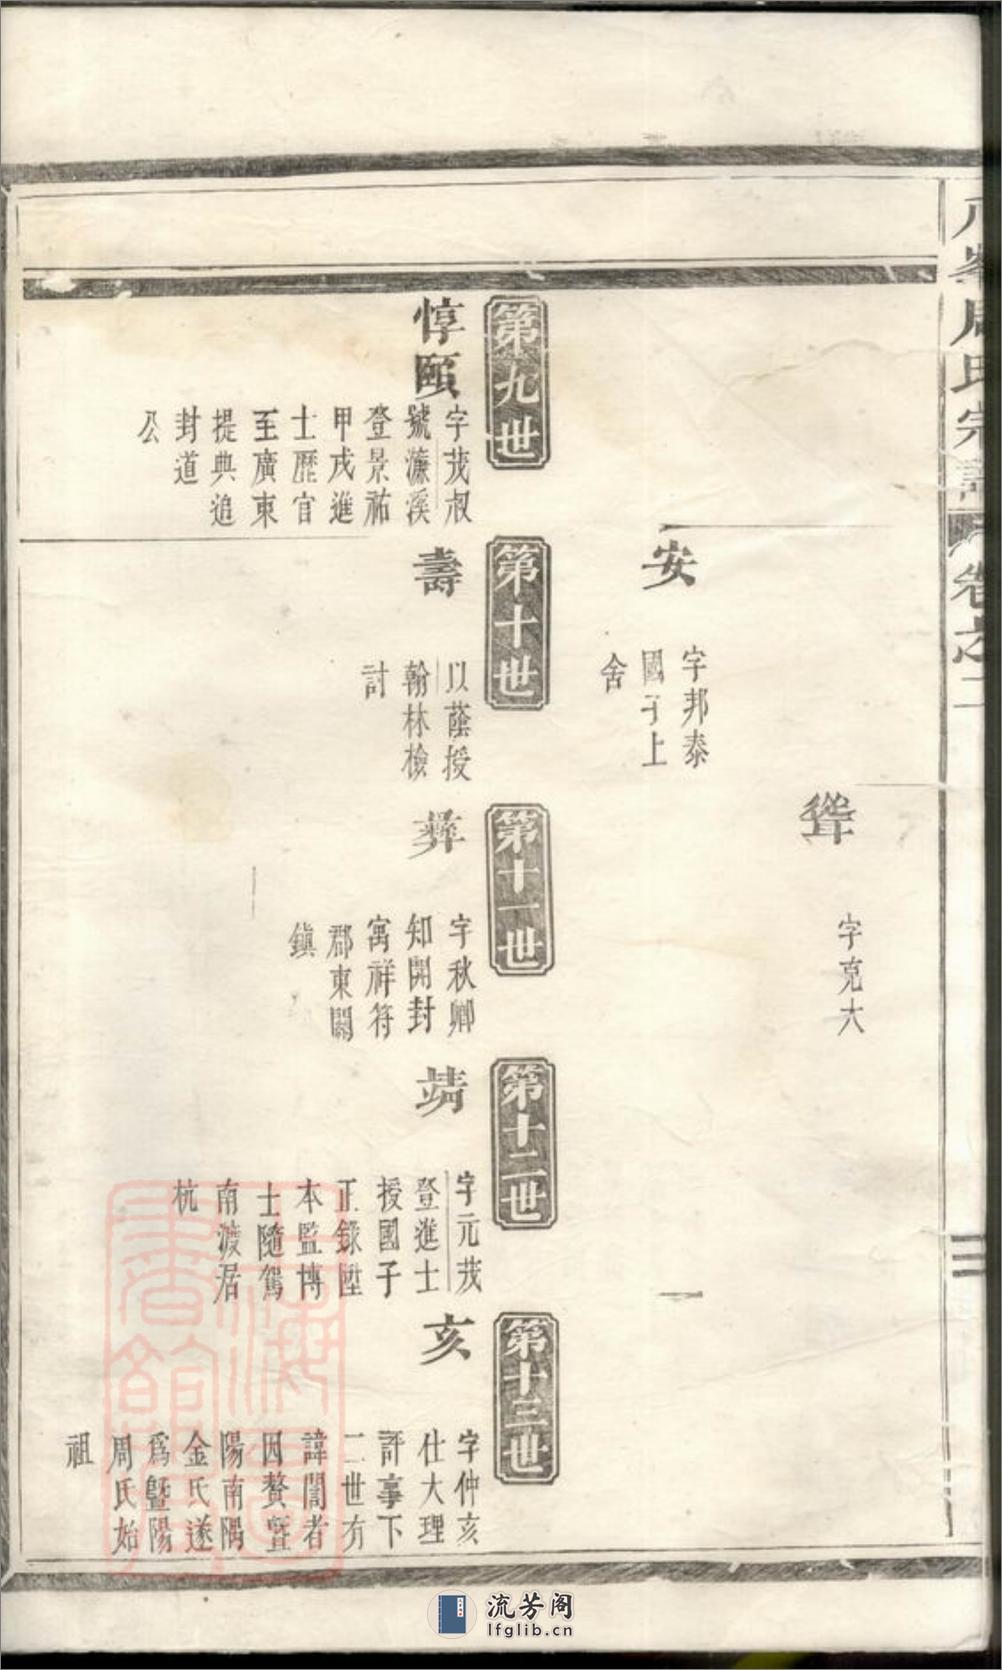 八峯周氏宗譜
卷之二
二
聳
字克大
安
字邦泰
國子上
舍
第九世
惇頤
字茂叔
號濂溪
登景祐
甲戌進
士歷官
至廣東
提典追
封道
公
第十世
壽
以蔭授
翰林檢
討
第十一世
彝
字秋卿
知開封
寓祥符
郡東關
鎮
第十二世
靖
字元茂
登進士
授國子
正錄陞
本監博
士隨駕
南渡居
杭
第十三世
亥
字仲亥
仕大理
評事下
二世有
諱誾者
因贅暨
陽南隅
金氏遂
爲暨陽
周氏始
祖
上海圖書館藏
流芳阁
lfglib.cn